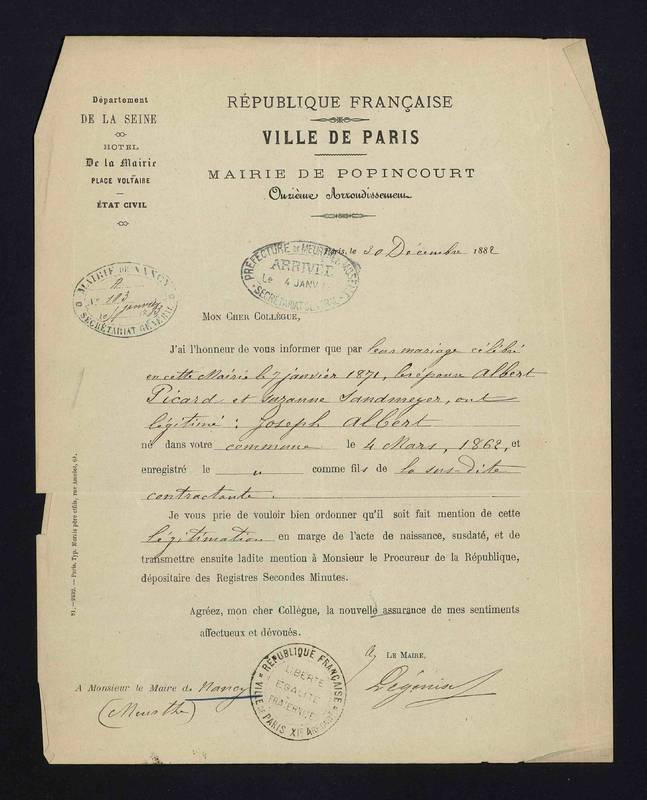 Département
DE LA SEINE
HOTEL
De la Mairie
PLACE VOLTAIRE
ÉTAT CIVIL
RÉPUBLIQUE FRANÇAISE
VILLE DE PARIS
MAIRIE DE POPINCOURT
Onzième Arrondissement
Paris, le 30 Décembre 1882
PRÉFECTURE DE MEURTHE-&-MOSELLE
ARRIVÉE
Le 4 JANV
SECRÉTARIAT GÉNÉRAL
MAIRIE DE NANCY
N° 193
janvier
SECRÉTARIAT GÉNÉRAL
MON CHER COLLÈGUE,
J'ai l'honneur de vous informer que par leur mariage célébré
en cette Mairie le 7 janvier 1871, les époux Albert
Picard et Suzanne Sandmeyer, ont
légitimé : Joseph Albert
né dans votre commune le 4 Mars, 1862, et
enregistré le " comme fils de la sus-dite
contractante.
Je vous prie de vouloir bien ordonner qu'il soit fait mention de cette
légitimation en marge de l'acte de naissance, susdaté, et de
transmettre ensuite ladite mention à Monsieur le Procureur de la République,
dépositaire des Registres Secondes Minutes.
Agréez, mon cher Collègue, la nouvelle assurance de mes sentiments
affectueux et dévoués.
LE MAIRE,
A Monsieur le Maire de Nancy
(Meurthe)
RÉPUBLIQUE FRANÇAISE
LIBERTÉ
EGALITÉ
FRATERNITÉ
VILLE DE PARIS XIe ARRONDt
Paris. Typ. Morris père et fils, rue Amelot, 64.